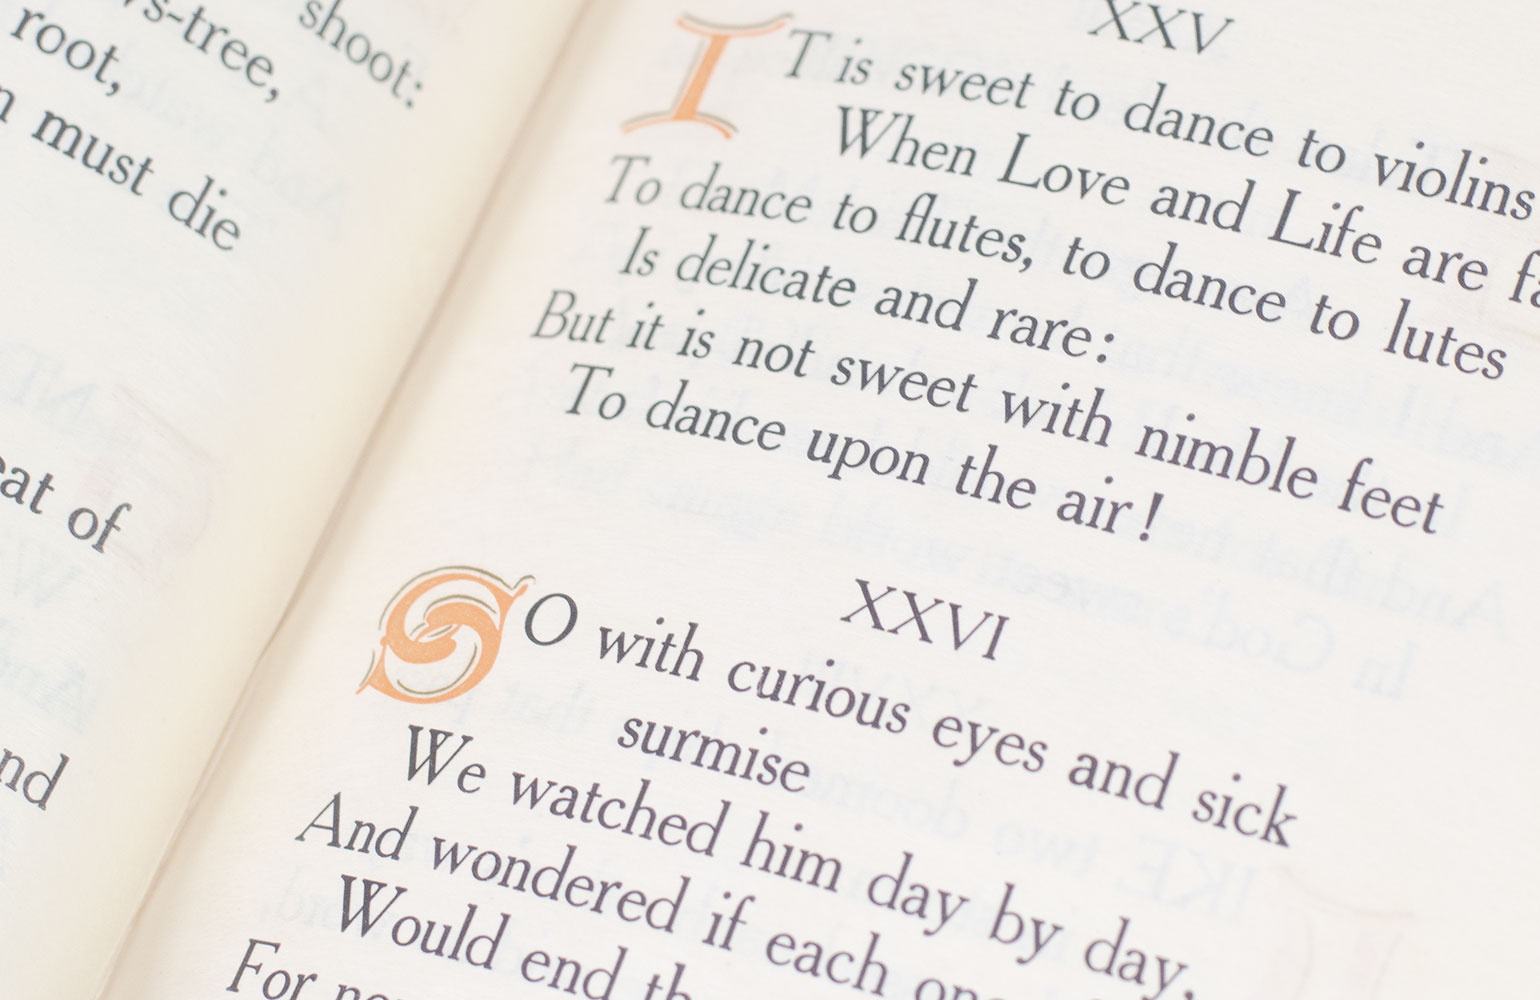 shoot:
s-tree,
root,
must die
at of
nd
XXV
IT is sweet to dance to violins
When Love and Life are
To dance to flutes, to dance to lutes
Is delicate and rare:
But it is not sweet with nimble feet
To dance upon the air!
XXVI
SO with curious eyes and sick
surmise
We watched him day by day,
And wondered if each
Would end
For